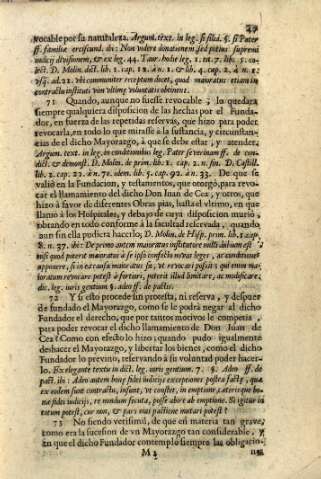 vocable por su naturaleza. Argum. text. in leg. si filia. §. si Pater
ff. familiæ erciscund. ibi: Non videre donationem, sed potius supremi
iudicij divisionem, & ex leg. 44. Taur. hodie leg. 1. tit. 7. lib. 5.
D. Molin. dict. lib. 1. cap. 12. à n. 1. & lib. 4. cap. 2. à n. 2.
communiter receptum docet, quod maioratus etiam in
contractu institutus vim ultimæ voluntatis obtinent.
71 Quando, aunque no fuesse revocable, lo quedara
siempre qualquiera disposicion de las hechas por el Funda-
dor, en fuerza de las repetidas reservas, que hizo para poder
revocarla, en todo lo que mirasse à la sustancia, y circunstan-
cias de el dicho Mayorazgo, à que se debe estar, y atender,
Argum. text. in leg. in conditionibus leg. Pater Severinam ff. de con-
dict. & demonst. D. Molin. de prim. lib. 2. cap. 2. n. fin. D. Castill.
lib. 2. cap. 22. à n. 70. idem. lib. 5. cap. 92. à n. 33. De que se
valiò en la Fundacion, y testamentos, que otorgò, para revo-
car el llamamiento del dicho Don Juan de Cea, y otros, que
hizo à favor de diferentes Obras pias, hasta el vltimo, en que
llamò à los Hospitales, y debajo de cuya disposicion muriò,
obrando en todo conforme à la facultad reservada, quando
aun sin ella pudiera hacerlo, D. Molin. de Hisp. prim. lib. 1. cap.
8. n. 37. ibi: De primo autem maioratus institutore nulli dubium est
nisi quod poterit maioratui à se ipso confecto novas leges, ac conditiones
apponere, si in ex causa maioratus sui, ut revocari possit: qui enim ma-
ioratum revocare potest à fortiori, poterit illud limitare, ac modificare,
dic. leg. iuris gentium §. adeo ff. de pactis.
72 Y si esto procede sin protesta, ni reserva, y despues
de fundado el Mayorazgo, como se le podrà negar al dicho
Fundador el derecho, que por tantos motivos le competia,
para poder revocar el dicho llamamiento de Don Juan de
Cea? Como con efecto lo hizo; quando pudo igualmente
deshacer el Mayorazgo, y libertar los bienes, como el dicho
Fundador lo previno, reservando à su voluntad poder hacer-
lo. Ex elegante textu in dict. leg. iuris gentium. 7. §. Adeo ff. de
pact. ibi: Adeo autem bonæ fidei iudicijs exceptiones postea factæ, quæ
ex eodem sunt contractu, insunt, ut constet, in emptione, cæterisque bo-
næ fidei iudicijs, re nondum secuta, posse abire ab emptione. Si igitur in
totum potest, cur non, & pars eius pactione mutari potest?
73 No siendo verisimil, de que en materia tan grave,
como era la sucesion de vn Mayorazgo tan considerable, y
en que el dicho Fundador contemplò siempre las obligacio-
M 2
nes